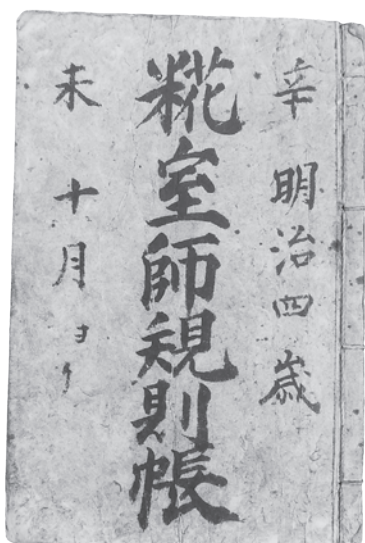 辛 明治四歳
糀室師規則帳
未 十月ヨリ